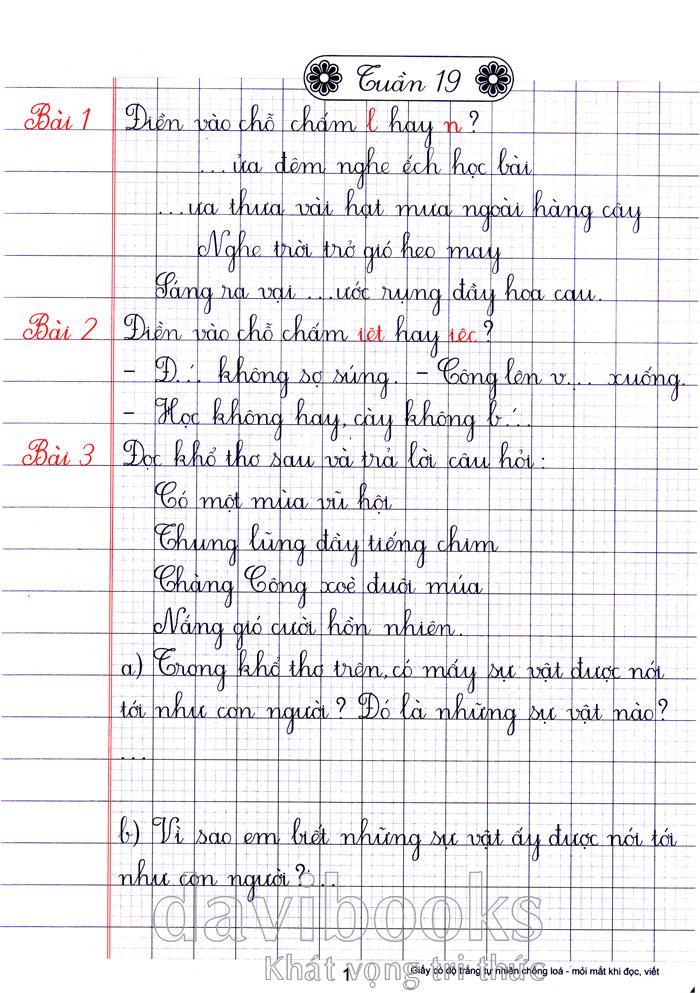 Tuần 19
Bài 1 Điền vào chỗ chấm l hay n?
...ửa đêm nghe ếch học bài
...ưa thưa vài hạt mưa ngoài hàng cây
Nghe trời trở gió heo may
Sáng ra vại ...ước rụng đầy hoa cau.
Bài 2 Điền vào chỗ chấm iêt hay iêc?
- Đ... không sợ súng. - Công lên v... xuống.
- Học không hay, cày không b...
Bài 3 Đọc khổ thơ sau và trả lời câu hỏi:
Có một mùa vũ hội
Thung lũng đầy tiếng chim
Chàng Công xoè đuôi múa
Nắng gió cười hồn nhiên.
a) Trong khổ thơ trên, có mấy sự vật được nói
tới như con người? Đó là những sự vật nào?
...
b) Vì sao em biết những sự vật ấy được nói tới
như con người?...
davibooks
Khát vọng tri thức
1 Giấy có độ trắng tự nhiên chống loá - mỏi mắt khi đọc, viết